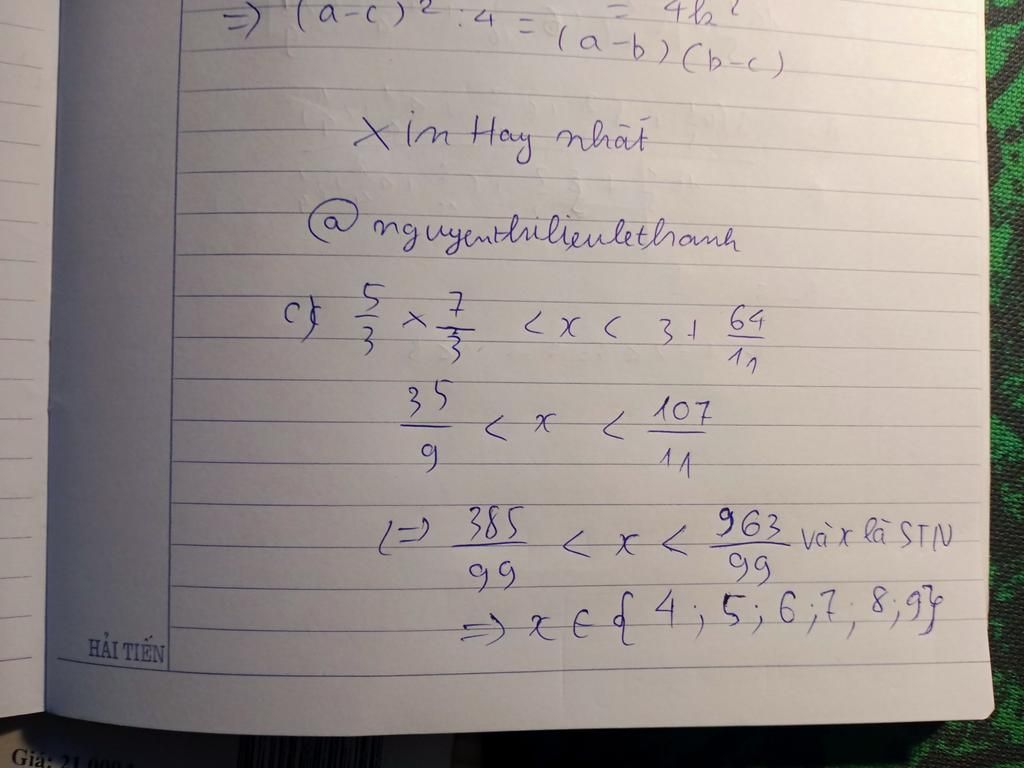 => (a-c)² : 4 = = 4k²
(a-b)(b-c)
Xin Hay nhất
@nguyenthilieulethanh
c) 5/3 × 7/3 < x < 3 + 64/11
35/9 < x < 107/11
(=> 385/99 < x < 963/99 và x là STN
=> x ∈ { 4 ; 5 ; 6 ; 7 ; 8 ; 9}
HẢI TIẾN
Giá: 21.000